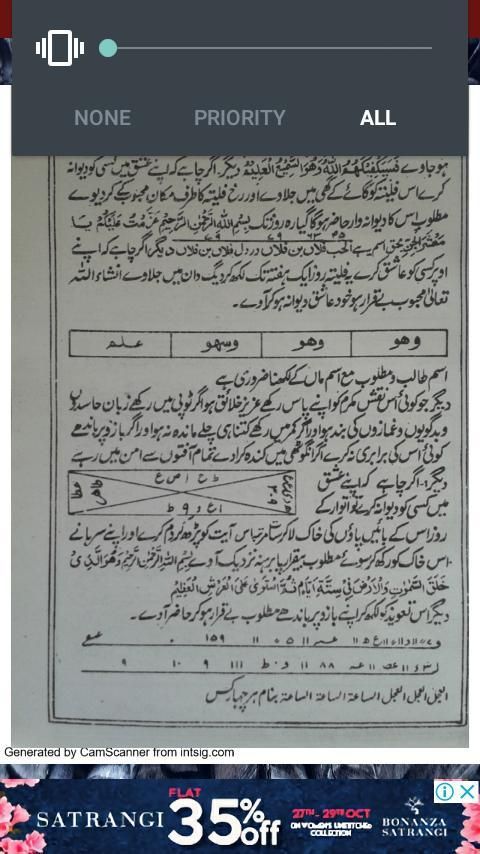 NONE PRIORITY ALL
ہوجاوے فَسَيَكْفِيكَهُمُ اللّٰهُ وَهُوَ السَّمِيعُ الْعَلِيمُ دیگر۔ اگر چاہے کہ اپنے عشق میں کسی کو دیوانہ
کرے اس فلیتہ کو گائے کے گھی میں جلاوے اور رخ فلیتہ کا طرف مکان محبوب کے کر دیوے
مطلوب اس کا دیوانہ وار حاضر ہوگا گیارہ روز تک بِسْمِ اللّٰهِ الرَّحْمٰنِ الرَّحِيْمِ عَزَمْتُ عَلَيْكُمْ يَا
الحب فلاں بن فلاں در دل فلاں بن فلاں دیگر اگر چاہے کہ اپنے
اوپر کسی کو عاشق کرے یہ فلیتہ روز ایک ہفتہ تک لکھ کر دیگ دان میں جلاوے انشاء اللہ
تعالیٰ محبوب بے قرار ہو خود عاشق دیوانہ ہو کر آوے۔
وهو وهو وسهو علم
اسم طالب و مطلوب مع اسم ماں کے لکھنا ضروری ہے
دیگر جو کوئی اس نقش مکرم کو اپنے پاس رکھے عزیز خلائق ہو اگر ٹوپی میں رکھے زبان حاسدوں
و بدگویوں و غمازوں کی بند ہو اور اگر کمر میں رکھے کتنا ہی چلے ماندہ نہ ہو اور اگر بازو پر باندھے
کوئی اس کی برابری نہ کرے اگر انگوٹھی میں کندہ کراوے تمام آفتوں سے امن میں رہے
دیگر۔ اگر چاہے کہ اپنے عشق
میں کسی کو دیوانہ کرے تو اتوار کے
روز اس کے بائیں پاؤں کی خاک لا کر سات بار اس آیت کو پڑھ کر دم کرے اور اپنے سرہانے
اس خاک کو رکھ کر سوئے مطلوب بیقرار پا برہنہ نزدیک آوے بِسْمِ اللّٰهِ الرَّحْمٰنِ الرَّحِيْمِ وَهُوَ الَّذِيْ
خَلَقَ السَّمٰوٰتِ وَالْاَرْضَ فِيْ سِتَّةِ اَيَّامٍ ثُمَّ اسْتَوٰى عَلَى الْعَرْشِ الْعَظِيْمِ
دیگر اس تعویذ کو لکھ کر اپنے بازو پر باندھے مطلوب بے قرار ہو کر حاضر آوے۔
العجل العجل العجل الساعة الساعة الساعة بنام ہر چہار کس
Generated by CamScanner from intsig.com
SATRANGI FLAT 35% off 27TH - 29TH OCT ON WOMEN'S UNSTITCHED COLLECTION BONANZA SATRANGI